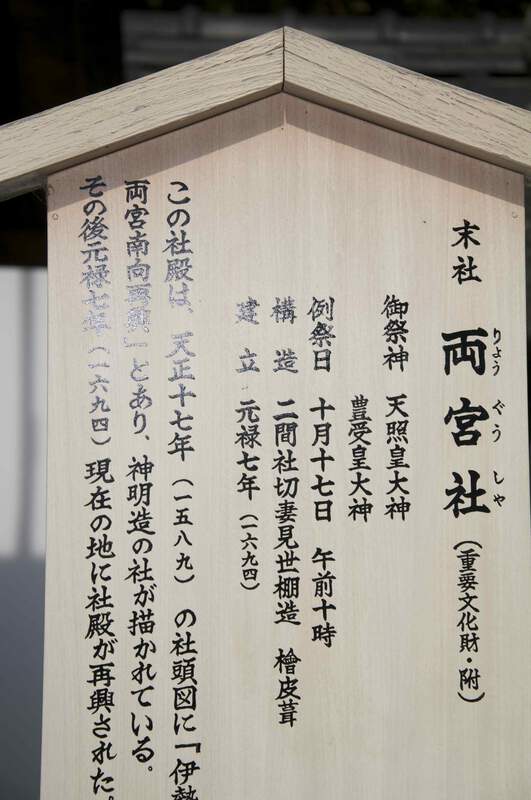 末社 両宮社(重要文化財・附)
りょう ぐう しゃ
御祭神 天照皇大神
豊受皇大神
例祭日 十月十七日 午前十時
構造 二間社切妻見世棚造 檜皮葺
建立 元禄七年(一六九四)
この社殿は、天正十七年(一五八九)の社頭図に『伊勢
両宮南向再興』とあり、神明造の社が描かれている。
その後元禄七年(一六九四)現在の地に社殿が再興された。